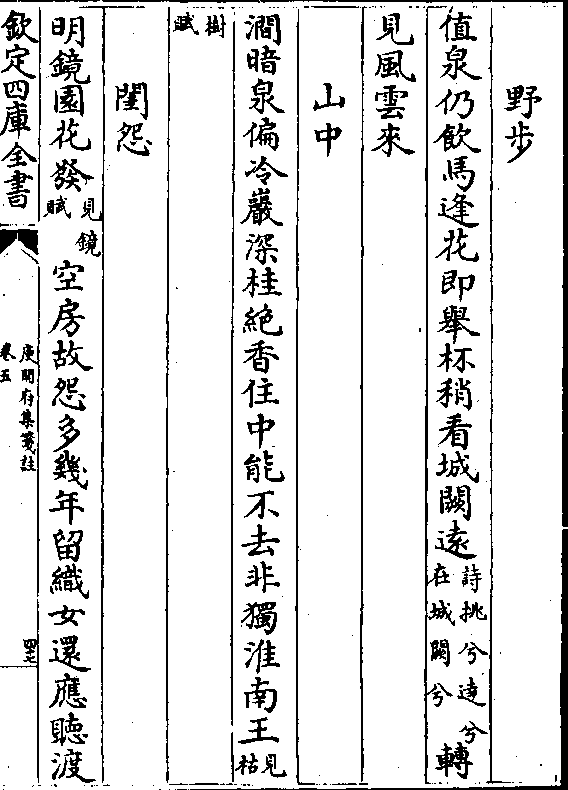 野步
值泉仍飲馬逢花即舉杯稍看城闕遠詩挑兮達兮在城闕兮轉
見風雲來
山中
澗暗泉偏冷巖深桂絶香住中能不去非獨淮南王見枯
樹賦
閨怨
明鏡圓花發見鏡賦空房故怨多幾年留織女還應聽渡
欽定四庫全書
庾開府集箋註
卷五
四十七